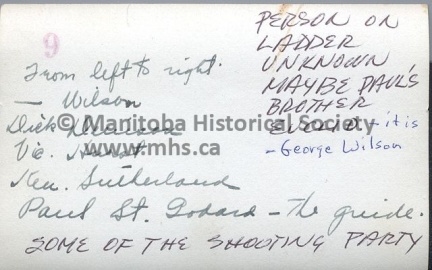 9
From left to right.
— Wilson
Dick
Vic. Hurst
Ken. Sutherland
Paul St. Godard – the guide.
SOME OF THE SHOOTING PARTY
PERSON ON
LADDER
UNKNOWN
MAYBE PAUL'S
BROTHER
– it is
– George Wilson
© Manitoba Historical Society
www.mhs.ca